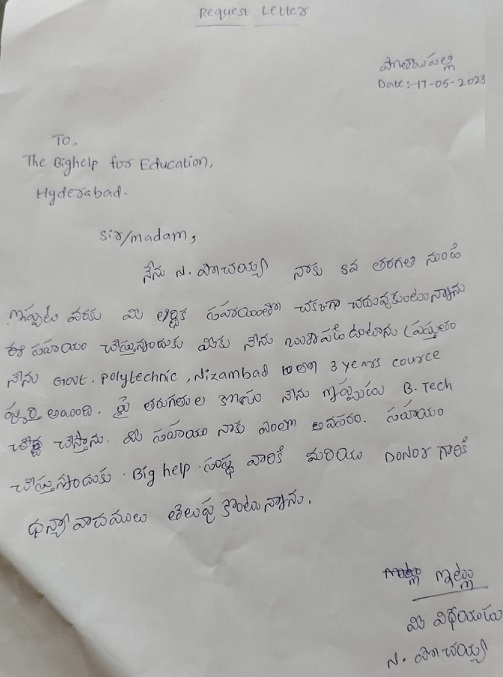 Request Letter
పోతాయిపల్లి
Date:-17-05-2023
To,
The Bighelp for Education,
Hyderabad.
Sir/madam,
నేను N. పోచయ్య నాకు 8వ తరగతి నుండి
ఇప్పటి వరకు మీ ఆర్థిక సహాయంతో చక్కగా చదువుకుంటున్నాను
ఈ సహాయం చేస్తున్నందుకు మీకు నేను ఋణపడి ఉంటాను ప్రస్తుతం
నేను Govt. polytechnic, Nizambad లో 3 years cource
పూర్తి అయింది. పై తరగతుల కోసం నేను ఇప్పుడు B. Tech
చేస్తాను. మీ సహాయం నాకు ఎంతో అవసరం. సహాయం
చేస్తున్నందుకు Big help సంస్థ వారికి మరియు DONOR గారికి
ధన్యవాదములు తెలుపు కొంటున్నాను.
ఇట్లు
మీ విధేయుడు
N. పోచయ్య